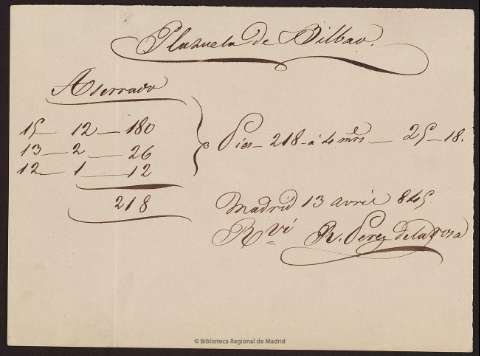 Plazuela de Bilbao.
Aserrado
15 — 12 — 180
13 — 2 — 26
12 — 1 — 12
218
Pies — 218 — á 4 mrs — 25 — 18.
Madrid 13 avril 845
R.ví R. Perez de la
© Biblioteca Regional de Madrid